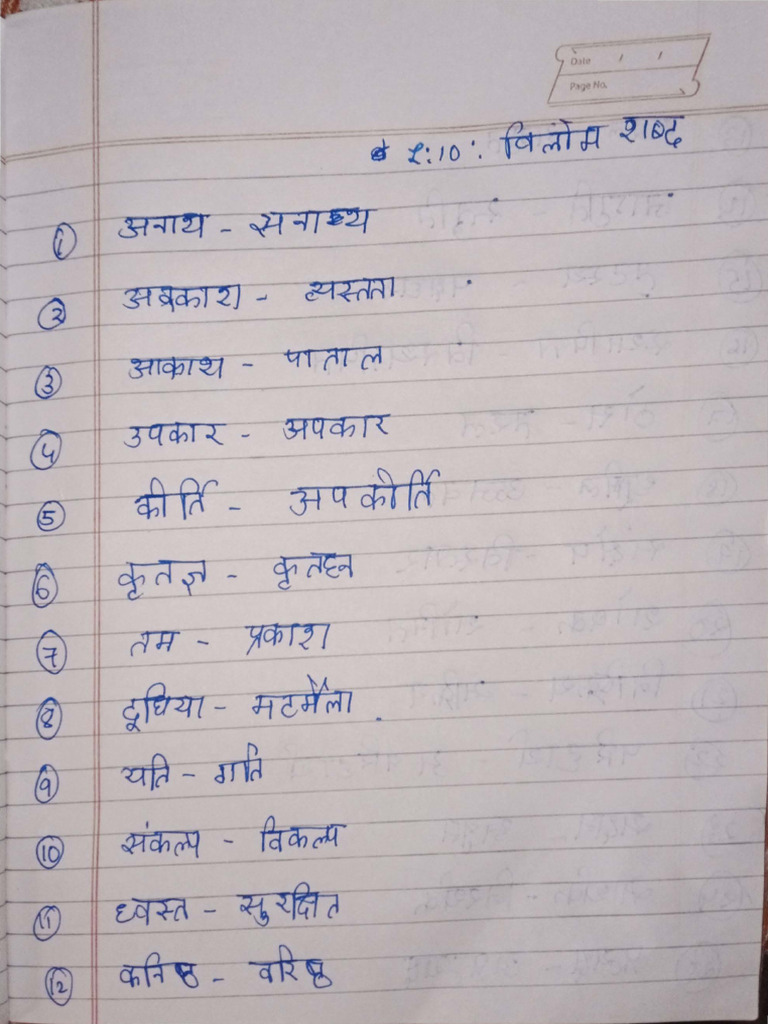 Date / /
Page No.
L:10: विलोम शब्द
① अनाथ - सनाथ
② अवकाश - व्यस्तता
③ आकाश - पाताल
④ उपकार - अपकार
⑤ कीर्ति - अपकीर्ति
⑥ कृतज्ञ - कृतघ्न
⑦ तम - प्रकाश
⑧ दूधिया - मटमैला
⑨ यति - गति
⑩ संकल्प - विकल्प
⑪ ध्वस्त - सुरक्षित
⑫ कनिष्ठ - वरिष्ठ